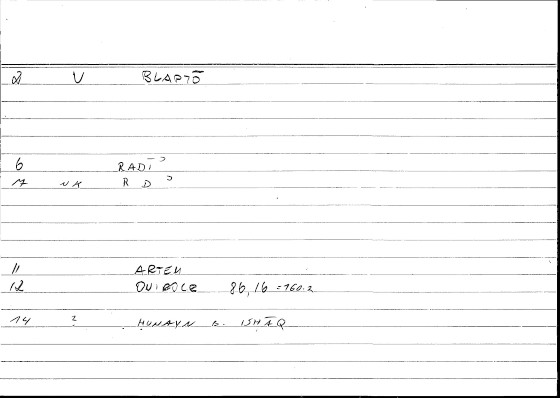 2 V BLAPTŌ
6 RADĪʾ
7 NA R D ʾ
11 ARTEM
12 ONIROCR 86,16 = 160.2
14 ? ḤUNAYN B. ISḤĀQ